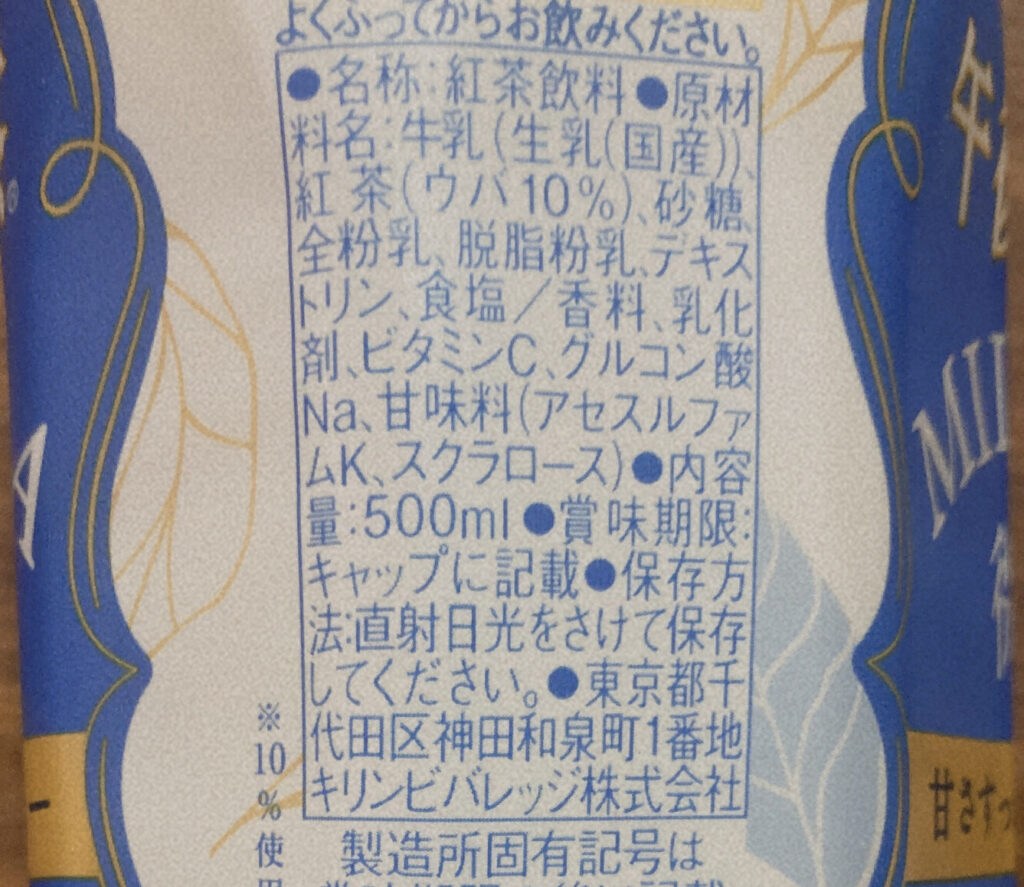 よくふってからお飲みください。
●名称:紅茶飲料●原材
料名:牛乳(生乳(国産))、
紅茶(ウバ10%)、砂糖、
全粉乳、脱脂粉乳、デキス
トリン、食塩/香料、乳化
剤、ビタミンC、グルコン酸
Na、甘味料(アセスルファ
ムK、スクラロース)●内容
量:500ml●賞味期限:
キャップに記載●保存方
法:直射日光をさけて保存
してください。●東京都千
代田区神田和泉町1番地
キリンビバレッジ株式会社
製造所固有記号は
※10%使
MIL
甘さすっ